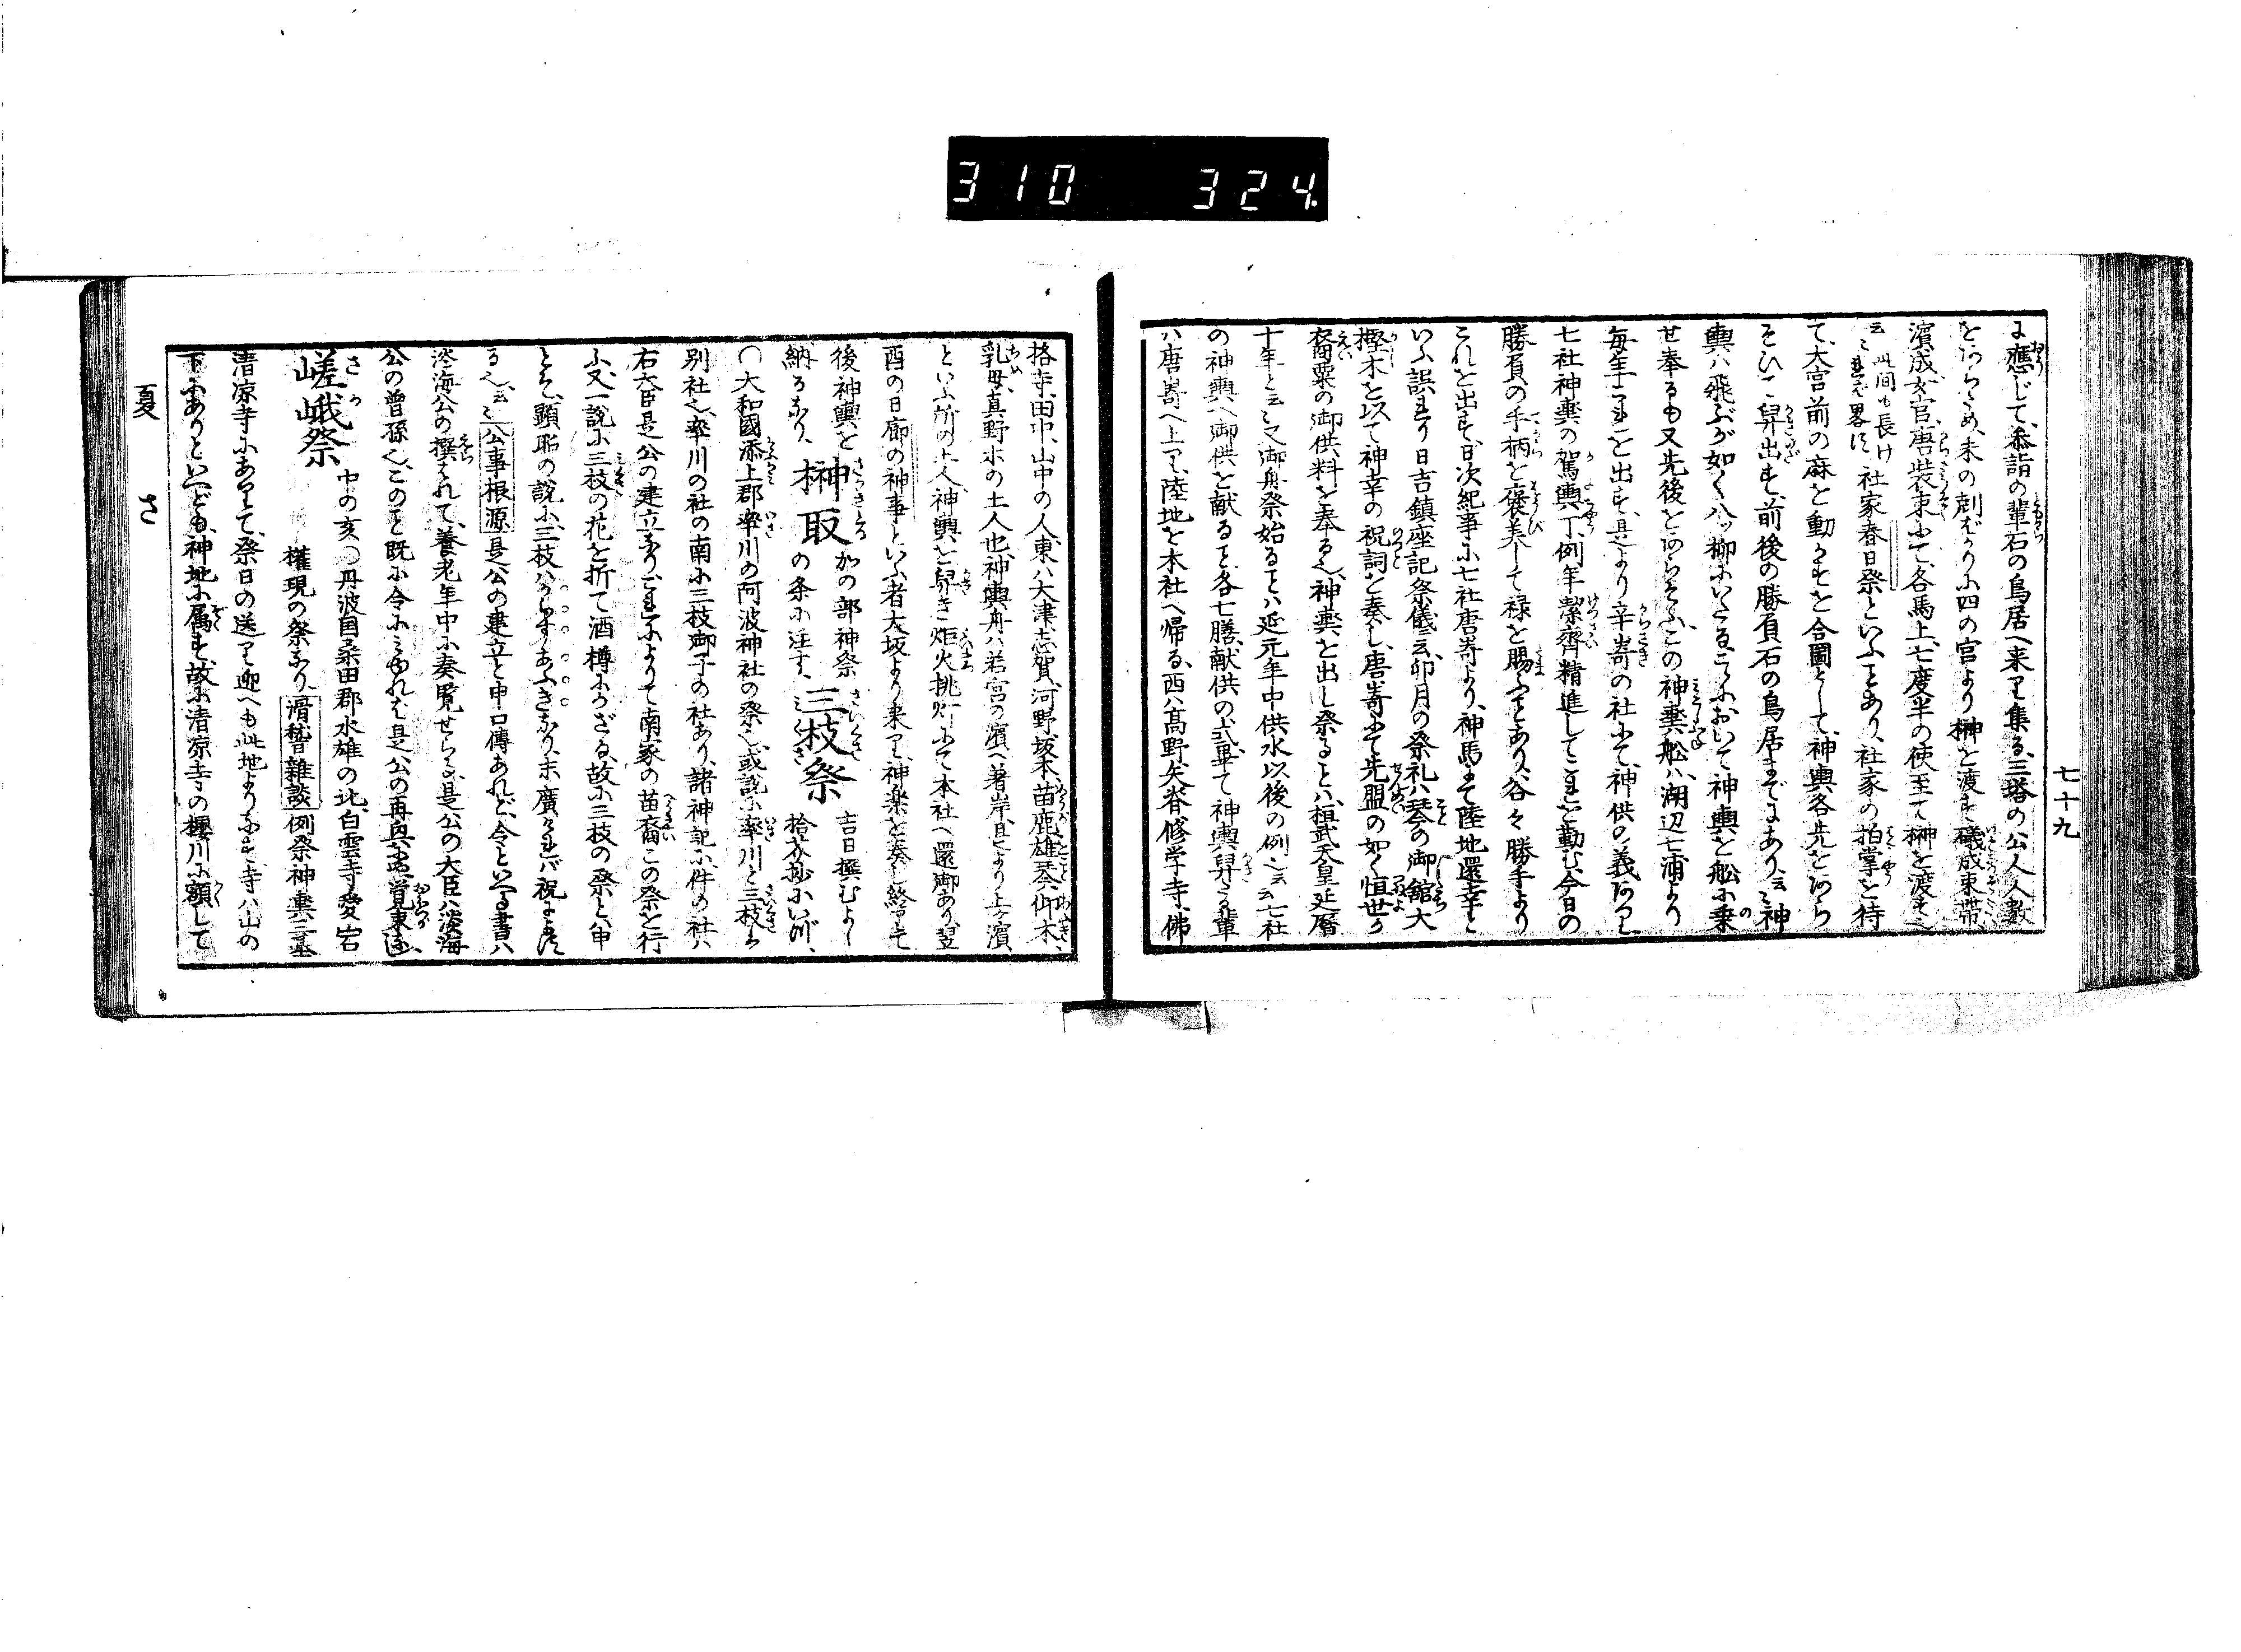 310 324
七十九
に應じて、参詣の輩石の鳥居へ来り集る、三塔の公人人数
をあらため、未の刻ばかりに四の宮より榊を渡す、礒成束帯、
濱成玄官、唐装束にて、各馬上、七度半の使至て榊を渡す也
云々 此間も長け れば畧す 社家春日祭といふことあり、社家の拍掌を待
て、大宮前の麻を動すを合圖として、神輿各先をあら
そひこ舁出す、前後の勝負石の鳥居までにあり、云々神
輿ハ飛ぶが如く八ツ柳にいたるこゝにおいて神輿を舩に乗
せ奉るも又先後をあらそふ、この神輿舩ハ、湖辺七浦より
毎年これを出す、是より辛嵜の社にて、神供の義あり
七社神輿の駕輿丁、例年潔齋精進してこれを勤む、今日の
勝負の手柄を褒美して禄を賜ふことあり、谷々勝手より
これを出す、日次紀事に七社唐嵜より、神馬にて陸地還幸と
いふ誤まり日吉鎮座記祭儀云、卯月の祭礼ハ琴の御舘大
樫木を以て神幸の祝詞を奏し、唐嵜にて先盟の如く恒世が
裔粟の御供料を奉る也、神輿を出し祭ることハ、桓武天皇延暦
十年と云々又御舟祭始ることハ延元年中供水以後の例也云云七社
の神輿へ御供を献ること各七膳、献供の式畢て神輿舁たる輩
ハ唐嵜へ上り、陸地を本社へ帰る、西ハ髙野矢脊、修学寺、佛
格寺、田中、山中の人、東ハ大津、志賀、河野、坂本、苗鹿、雄琴、仰木、
乳母、真野、水の土人也、神輿舟ハ若宮の濱へ着岸、且より上ケ濱
といふ所の土人、神輿を舁き炬火挑灯にて本社へ還御あり、翌
酉の日廊の神事といふ者大坂より来り、神楽を奏し終りて
後神輿を納るなり、 榊取 かの部神祭の条に注す、 三枝祭 吉日撰むよし拾芥抄にいづ、
〇大和國添上郡率川の阿波神社の祭也、或説に率川と三枝が
別社也、率川の社の南に三枝御子の社あり、諸神記に件の社ハ
右大臣是公の建立なりこれによりて南家の苗裔この祭を行
ふ、又一説に三枝の花を折て酒樽にかざる故に三枝の祭と申
とぞ、顕昭の説に三枝ハからすあふきなり、末廣ければ祝によす
る也、云々 公事根源 是公の建立と申口傳あれど、令といへる書ハ
淡海公の撰ばれて、養老年中に奏覧せらる、是公の大臣ハ淡海
公の曽孫也、このこと既に令にみゆれば是公の再興歟、覚束なし、
嵯峨祭 中の亥 〇丹波国桑田郡水雄の北、白雲寺愛宕権現の祭なり、 滑稽雜談 例祭神輿三基
清凉寺にありて、祭日の送り迎へも此地よりなす、寺ハ山の
下にありといへども、神地に属す、故に清凉寺の櫻川に額して
夏 さ